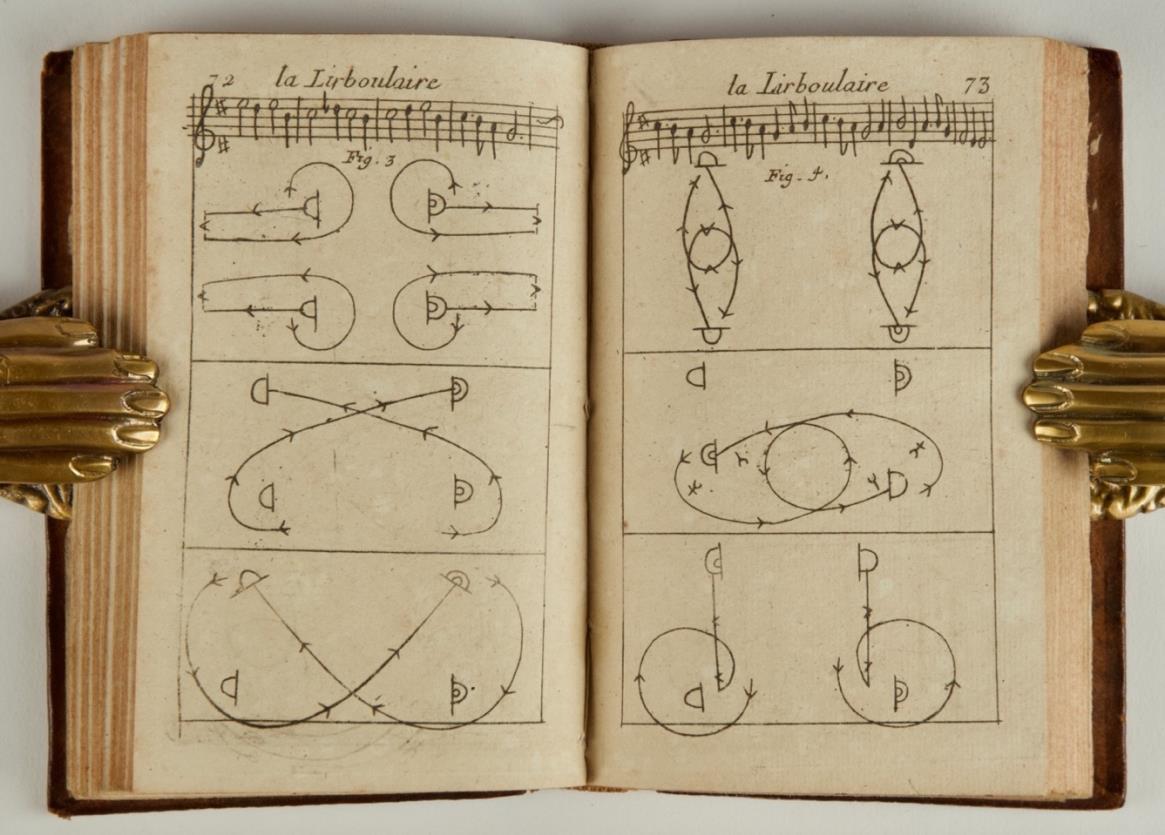 72 la Lirboulaire
Fig. 3
la Lirboulaire 73
Fig. 4.